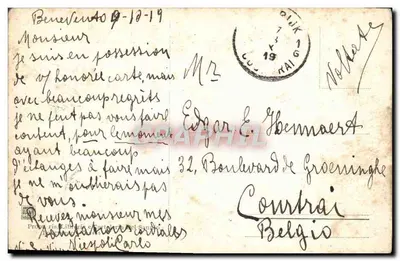 Benevento 9-12-19
Monsieur
je suis en possession
de v/ honorée carte, mais
avec beaucoup regrêts
je ne peut pas vous faire
content, pour le moment
ayant beaucoup
d'élanges à faire mais
je ne m'oublierais pas
de vous.
Recevez monsieur mes
salutations cordiales
Carlo
Mr
Edgar E. Hennaert
32, Boulevard de Groeninghe
Courtrai
Belgio
Voltate
19